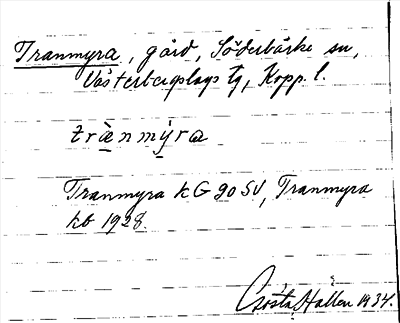 Tranmyra, gård, Söderbärke sn,
Västerbergslags tg, Kopp. l.
trànmýra
Tranmyra kG 90 SV, Tranmyra
kb 1928.
Gösta Hallen 1934.